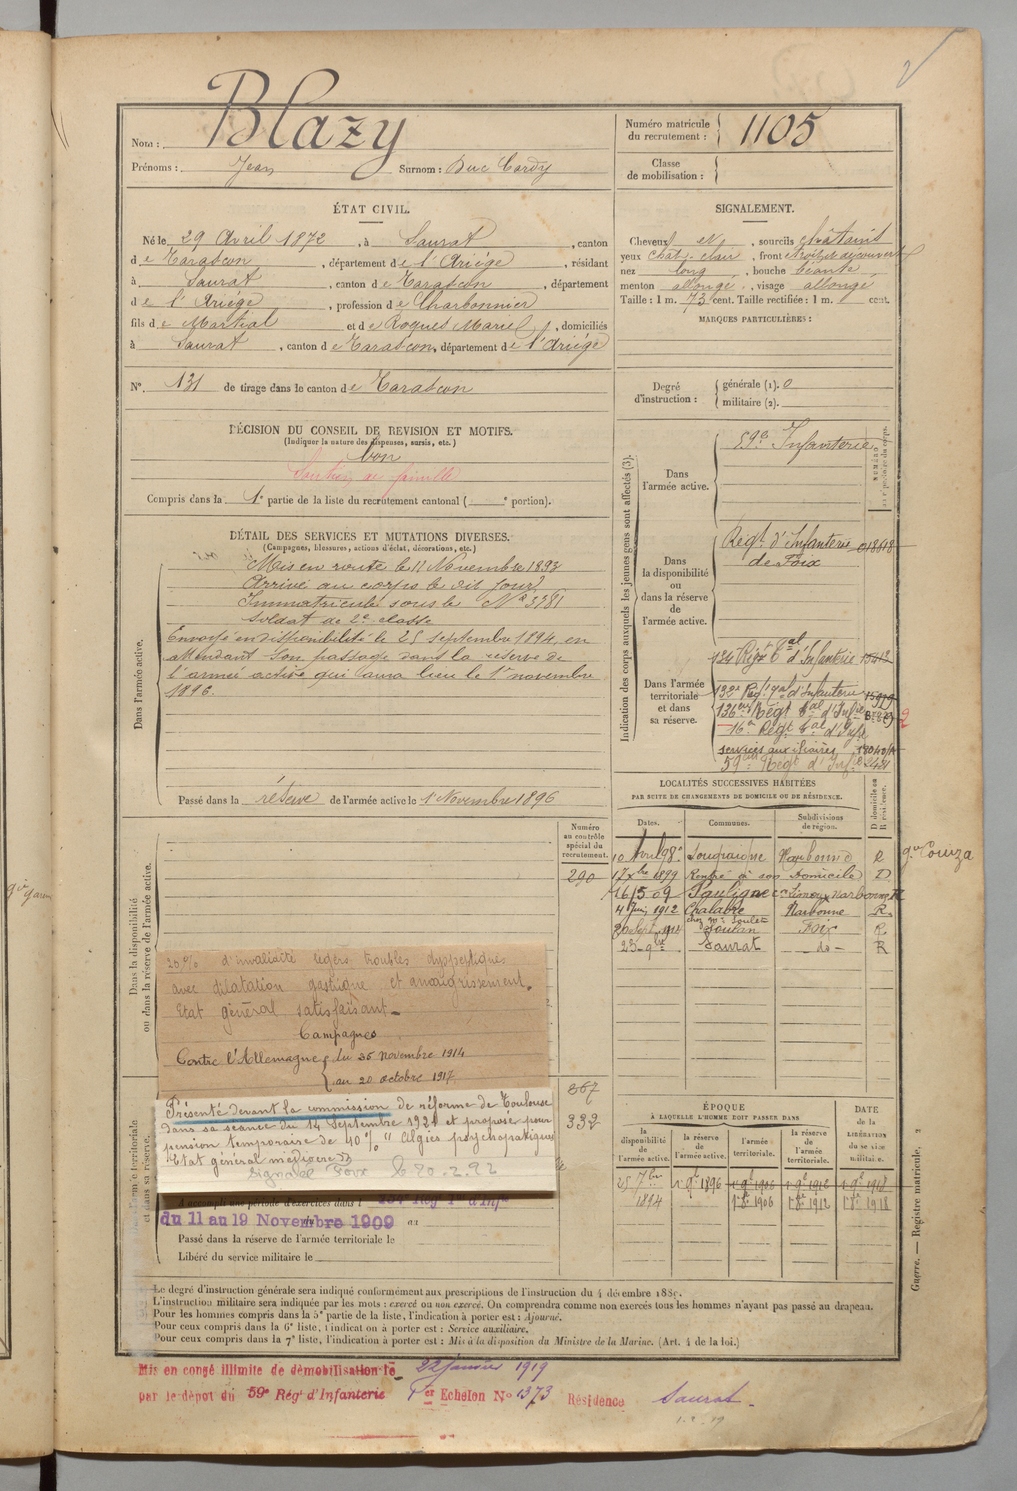 2
Nom : Blazy
Prénoms : Jean Surnom : Duc Cardy
Numéro matricule
du recrutement : 1105
Classe
de mobilisation :
ÉTAT CIVIL.
Né le 29 Avril 1872, à Saurat, canton
de Tarascon, département de l'Ariége, résidant
à Saurat, canton de Tarascon, département
de l'Ariége, profession de Charbonnier
fils de Martial et de Roques Marie, domiciliés
à Saurat, canton de Tarascon, département de l'Ariége
N° 131 de tirage dans le canton de Tarascon
SIGNALEMENT.
Cheveux et, sourcils châtains
yeux chat. clair, front étroit et découvert
nez long, bouche béante,
menton allongé, visage allongé
Taille : 1 m. 73 cent. Taille rectifiée : 1 m. cent.
MARQUES PARTICULIÈRES :
Degré
d'instruction :
générale (1). 0
militaire (2).
DÉCISION DU CONSEIL DE REVISION ET MOTIFS.
(Indiquer la nature des dispenses, sursis, etc.)
bon
Soutien de famille
Compris dans la 1e partie de la liste du recrutement cantonal ( e portion).
DÉTAIL DES SERVICES ET MUTATIONS DIVERSES.
(Campagnes, blessures, actions d'éclat, décorations, etc.)
Dans l'armée active.
Mis en route le 11 Novembre 1893
Arrivé au corps le dit jour
Immatriculé sous le N° 3381
Soldat de 2e classe
Envoyé en disponibilité le 25 septembre 1894, en
attendant son passage dans la réserve de
l'armée active qui aura lieu le 1er novembre
1896.
Passé dans la réserve de l'armée active le 1 Novembre 1896
Indication des corps auxquels les jeunes gens sont affectés (3).
Dans
l'armée active.
59e Infanterie
NUMÉRO
Dans
la disponibilité
ou
dans la réserve
de
l'armée active.
Régt. d'Infanterie 01868
de Foix
Dans l'armée
territoriale
et dans
sa réserve.
134 Régt tal d'Infanterie
132e Régt tal d'Infanterie
136eme Régt tal d'Infie
16e Régt tal d'Infie
2
services auxiliaires
59eme Régt d'Infie
LOCALITÉS SUCCESSIVES HABITÉES
PAR SUITE DE CHANGEMENTS DE DOMICILE OU DE RÉSIDENCE.
Dates.
Communes.
Subdivisions
de région.
D domicile ou
R résidence.
10 Avril 98 Sougraigne Narbonne
gce Couiza
17 Xbre 1899 Rentré à son Domicile D
16/5 09 Pauligne con Limoux Narbonne R
4 Juin 1912 Chalabre Narbonne R
chez Mr Soulet
Soulan Foix R
23 9bre Saurat do R
Numéro
au contrôle
spécial du
recrutement.
290
367
332
Dans la disponibilité
ou dans la réserve de l'armée active.
20% d'invalidité légers troubles dyspeptiques
avec dilatation gastrique et amaigrissement.
Etat général satisfaisant.
Campagnes
Contre l'Allemagne { du 26 Novembre 1914
{ au 20 octobre 1917
Présenté devant la commission de réforme de Toulouse
dans sa séance du 14 Septembre 1921 et proposé pour
pension temporaire de 10% "algies psychopatiques
Etat général médiocre"
Signalé Foix
A accompli une période d'exercices dans l
du 11 au 19 Novembre 1909 au
Passé dans la réserve de l'armée territoriale le
Libéré du service militaire le
ÉPOQUE
À LAQUELLE L'HOMME DOIT PASSER DANS
DATE
DE LA
LIBÉRATION
du service
militaire.
la
disponibilité
de
l'armée active.
la réserve
de
l'armée active.
l'armée
territoriale.
la réserve
de
l'armée
territoriale.
25 7bre 1er 9bre 1896 1er 9bre 1906 1er 9bre 1912 1er 9bre 1918
1894 1er 8bre 1906 1er 8bre 1912 1er 8bre 1918
Guerre. — Registre matricule. 2
Le degré d'instruction générale sera indiqué conformément aux prescriptions de l'instruction du 4 décembre 1889.
L'instruction militaire sera indiquée par les mots : exercé ou non exercé. On comprendra comme non exercés tous les hommes n'ayant pas passé au drapeau.
Pour les hommes compris dans la 5e partie de la liste, l'indication à porter est : Ajourné.
Pour ceux compris dans la 6e liste, l'indication à porter est : Service auxiliaire.
Pour ceux compris dans la 7e liste, l'indication à porter est : Mis à la disposition du Ministre de la Marine. (Art. 4 de la loi.)
Mis en congé illimité de démobilisation le 22 janvier 1919
par le dépôt du 59e Régt d'Infanterie 1er Echelon N° 1373 Résidence Saurat